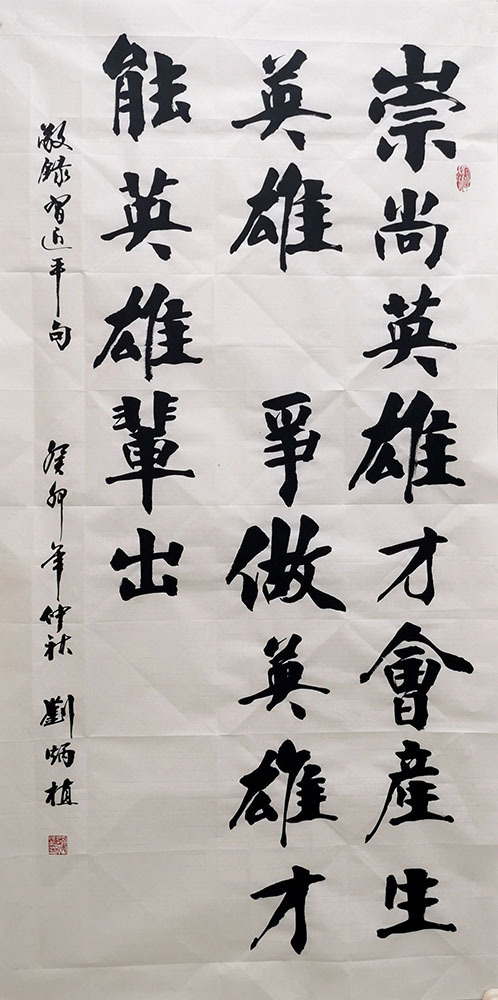 崇尚英雄才會產生
英雄 爭做英雄才
能英雄輩出
敬錄習近平句 癸卯年仲秋 劉炳植